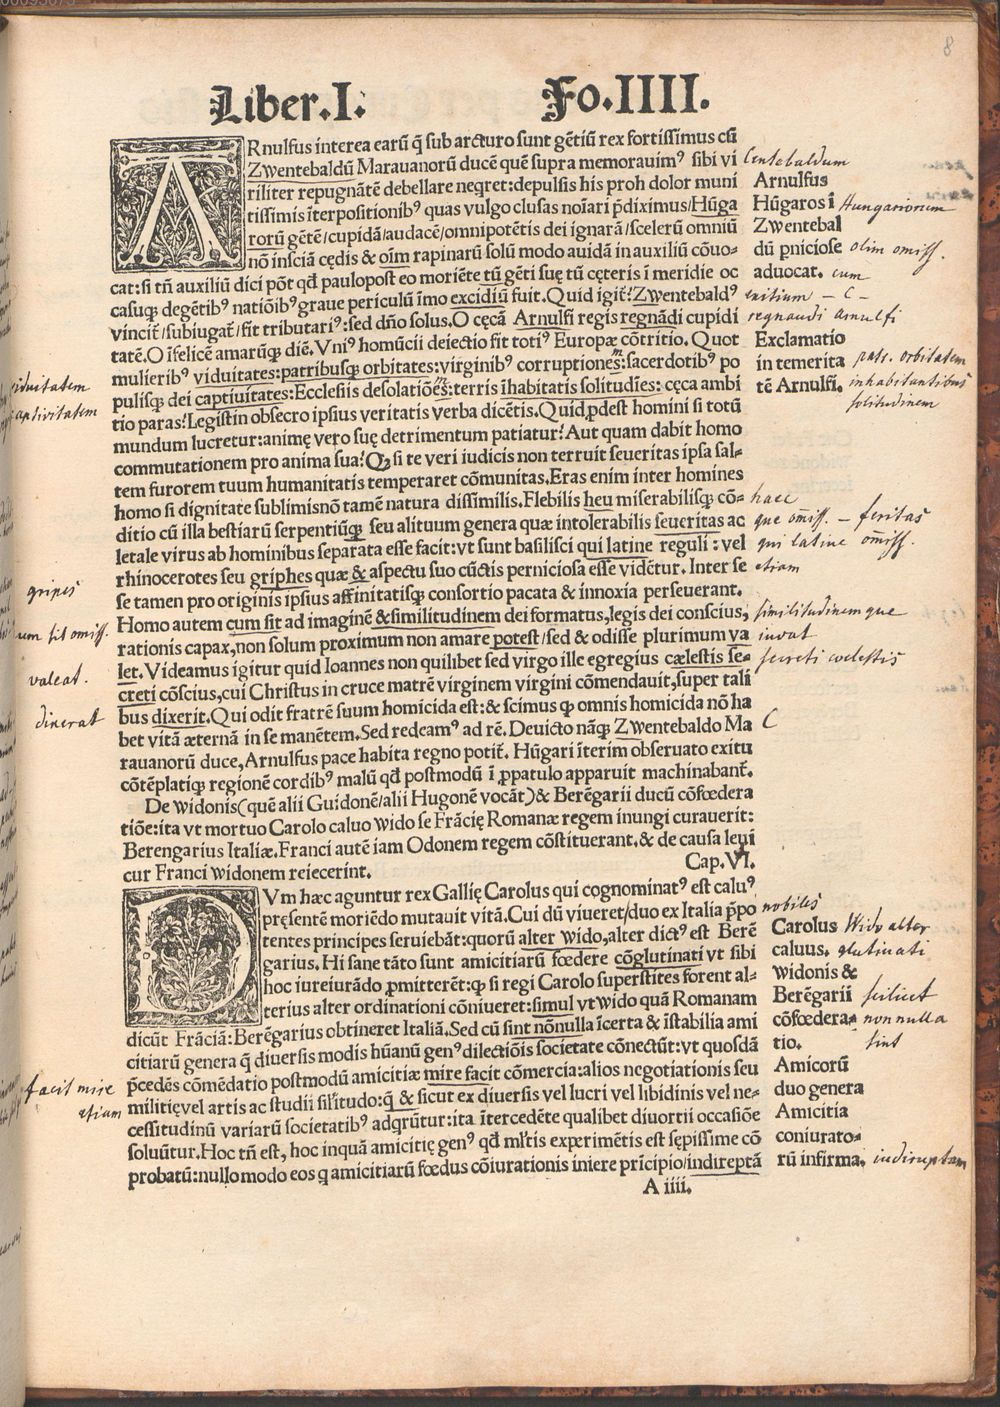 Liber.I. Fo.IIII.
ARnulfus interea earū q̄ sub arcturo sunt gētiū rex fortissimus cū
Zwentebaldū Marauanorū ducē quē supra memorauimꝰ sibi vi
riliter repugnātē debellare neq̄ret:depulsis his proh dolor muni
tissimis īterpositionibꝰ quas vulgo clusas noīari p̄diximus/Hūga
rorū gētē/cupidā/audacē/omnipotētis dei ignarā/scelerū omniū
nō insciā cędis & oīm rapinarū solū modo auidā in auxiliū cōuo-
cat:si tn̄ auxiliū dici pōt qđ paulopost eo moriēte tū gēti suę tū cęteris ī meridie oc
casuqꝫ degētibꝰ natiōibꝰ graue periculū īmo excidiū fuit.Quid igiť?Zwentebaldꝰ
vinciť/subiugať/fit tributariꝰ:sed dño solus.O cęcā Arnulfi regis regnādi cupidi
tatē.O īfelicē amarūqꝫ diē.Vniꝰ homūcii deiectio fit totiꝰ Europæ cōtritio.Quot
mulieribꝰ viduitates:patribusqꝫ orbitates:virginibꝰ corruptiones:sacerdotibꝰ po
pulisqꝫ dei captiuitates:Ecclesiis desolatiōes:terris īhabitatis solitudīes:cęca ambi
tio paras?Legistin obsecro ipsius veritatis verba dicētis.Quid ꝓdest homini si totū
mundum lucretur:animę vero suę detrimentum patiatur?Aut quam dabit homo
commutationem pro anima sua?Qꝫ si te veri iudicis non terruit seueritas ipsa sal-
tem furorem tuum humanitatis temperaret cōmunitas.Eras enim inter homines
homo si dignitate sublimisnō tamē natura dissimilis.Flebilis heu miserabilisqꝫ cō-
ditio cū illa bestiarū serpentiūqꝫ seu alituum genera quæ intolerabilis seueritas ac
letale virus ab hominibus separata esse facit:vt sunt basilisci qui latine reguli: vel
rhinocerotes seu griphes quæ & aspectu suo cūctis perniciosa esse vidētur.Inter se
se tamen pro originis ipsius affinitatisqꝫ consortio pacata & innoxia perseuerant.
Homo autem cum sit ad imaginē &similitudinem dei formatus,legis dei conscius,
rationis capax,non solum proximum non amare potest/sed & odisse plurimum va
let.Videamus igitur quid Ioannes non quilibet sed virgo ille egregius cælestis se-
creti cōscius,cui Christus in cruce matrē virginem virgini cōmendauit,super tali
bus dixerit.Qui odit fratrē suum homicida est:& scimus qꝫ omnis homicida nō ha
bet vitā æternā in se manētem.Sed redeamꝰ ad rē.Deuicto nāqꝫ Zwentebaldo Ma
rauanorū duce,Arnulfus pace habita regno potiť.Hūgari īterim obseruato exitu
cōtēplatiqꝫ regionē cordibꝰ malū qđ postmodū ī ꝓpatulo apparuit machinabanť.
De widonis(quē alii Guidonē/alii Hugonē vocāt)& Berēgarii ducū cōfœdera
tiōe:ita vt mortuo Carolo caluo wido se Frācię Romanæ regem inungi curauerit:
Berengarius Italiæ.Franci autē iam Odonem regem cōstituerant.& de causa leui
cur Franci widonem reiecerint. Cap.VI.
DVm hæc aguntur rex Gallię Carolus qui cognominatꝰ est caluꝰ
pręsentē moriēdo mutauit vitā.Cui dū viueret/duo ex Italia p̄po
tentes principes seruiebāt:quorū alter wido,alter dictꝰ est Berē
garius.Hi sane tāto sunt amicitiarū fœdere cōglutinati vt sibi
hoc iureiurādo ꝓmitterēt:qꝫ si regi Carolo superstites forent al-
terius alter ordinationi cōniueret:simul vt wido quā Romanam
dicūt Frāciā:Berēgarius obtineret Italiā.Sed cū sint nōnulla īcerta & īstabilia ami
citiarū genera q̄ diuersis modis hūanū genꝰ dilectiōis societate cōnectūt:vt quosdā
p̄cedēs cōmēdatio postmodū amicitiæ mire facit cōmercia:alios negotiationis seu
militięvel artis ac studii silitudo:q̄ & sicut ex diuersis vel lucri vel libidinis vel ne-
cessitudinū variarū societatibꝰ adq̄rūtur:ita ītercedēte qualibet diuortii occasiōe
soluūtur.Hoc tn̄ est, hoc inquā amicitię genꝰ qđ mltis experimētis est sępissime cō
probatū:nullo modo eos q amicitiarū fœdus cōiurationis iniere prīcipio/indireptā
A iiii.
Centebaldum
Arnulfus
Hūgaros ī Hungariorum
Zwentebal
dū ꝑniciose olim omiss.
aduocat. cum
exitium - C -
regnandi Arnulfi
Exclamatio
in temerita patr. orbitatem
tē Arnulfi. inhabitantibus
solitudinem
haec
que omiss. - feritas
qui latine omiss.
etiam
similitudinemque
invat
secreti coelestis
C
nobiles
Carolus Wido alter
caluus. glutinati
widonis &
Berēgarii scilicet
cōfœdera- nonnulla
tio. sint
Amicorū
duo genera
Amicitia
coniurato-
rū infirma. indiruptam
viduitatem
captivitatem
gripes
cum sit omiss.
valeat.
dixerat
facit mire
etiam
8